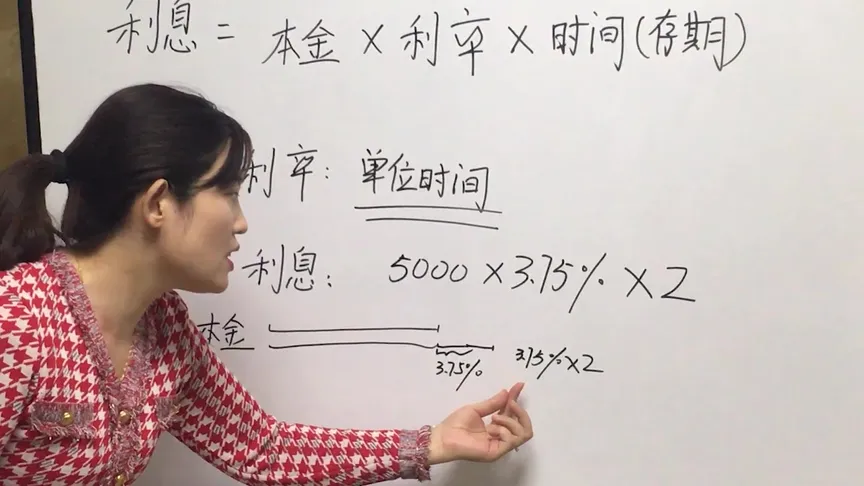 利息= 本金×利率×时间(存期)
利率:单位时间
利息: 5000×3.75%×2
本金
3.75% 3.75%×2